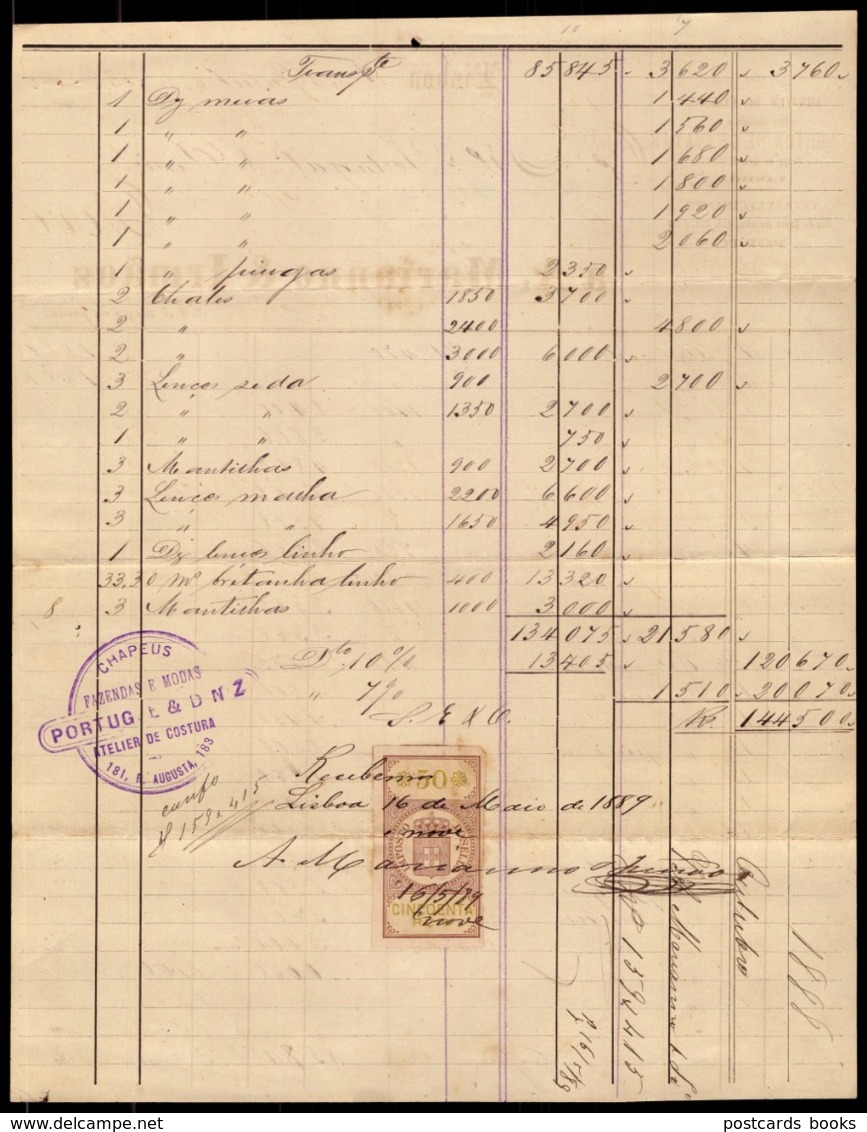 Transpte 85845 3620 3760
1 Dz meias 1440
1 " " 1560
1 " " 1680
1 " " 1800
1 " " 1920
1 " " 2060
1 " piugas 2350
2 Chales 1850 3700
2 " 2400 4800
2 " 3000 6000
3 Lenços seda 900 2700
2 " " 1350 2700
1 " " 750
3 Mantilhas 900 2700
3 Lenços malha 2200 6600
3 " " 1650 4950
1 Dz lenços linho 2160
33,30 ms bretanha linho 400 13320
8 3 Mantilhas 1000 3000
134075 21580
Dto 10% 13405 120670
" 7% 1510 20070
S. E & O. Rs 144500
CHAPEUS
FAZENDAS E MODAS
PORTUG E & D N Z
ATELIER DE COSTURA
181, R. AUGUSTA, 183
159 415
50
Recebemos
Lisboa 16 de Maio de 1889
e nove
IMPOSTO DO SELLO
A Marianno & Irmão
16/5/89
CINCOENTA
nove
159 415
16/5/89
Marianno &
Outubro
1888
postcards books